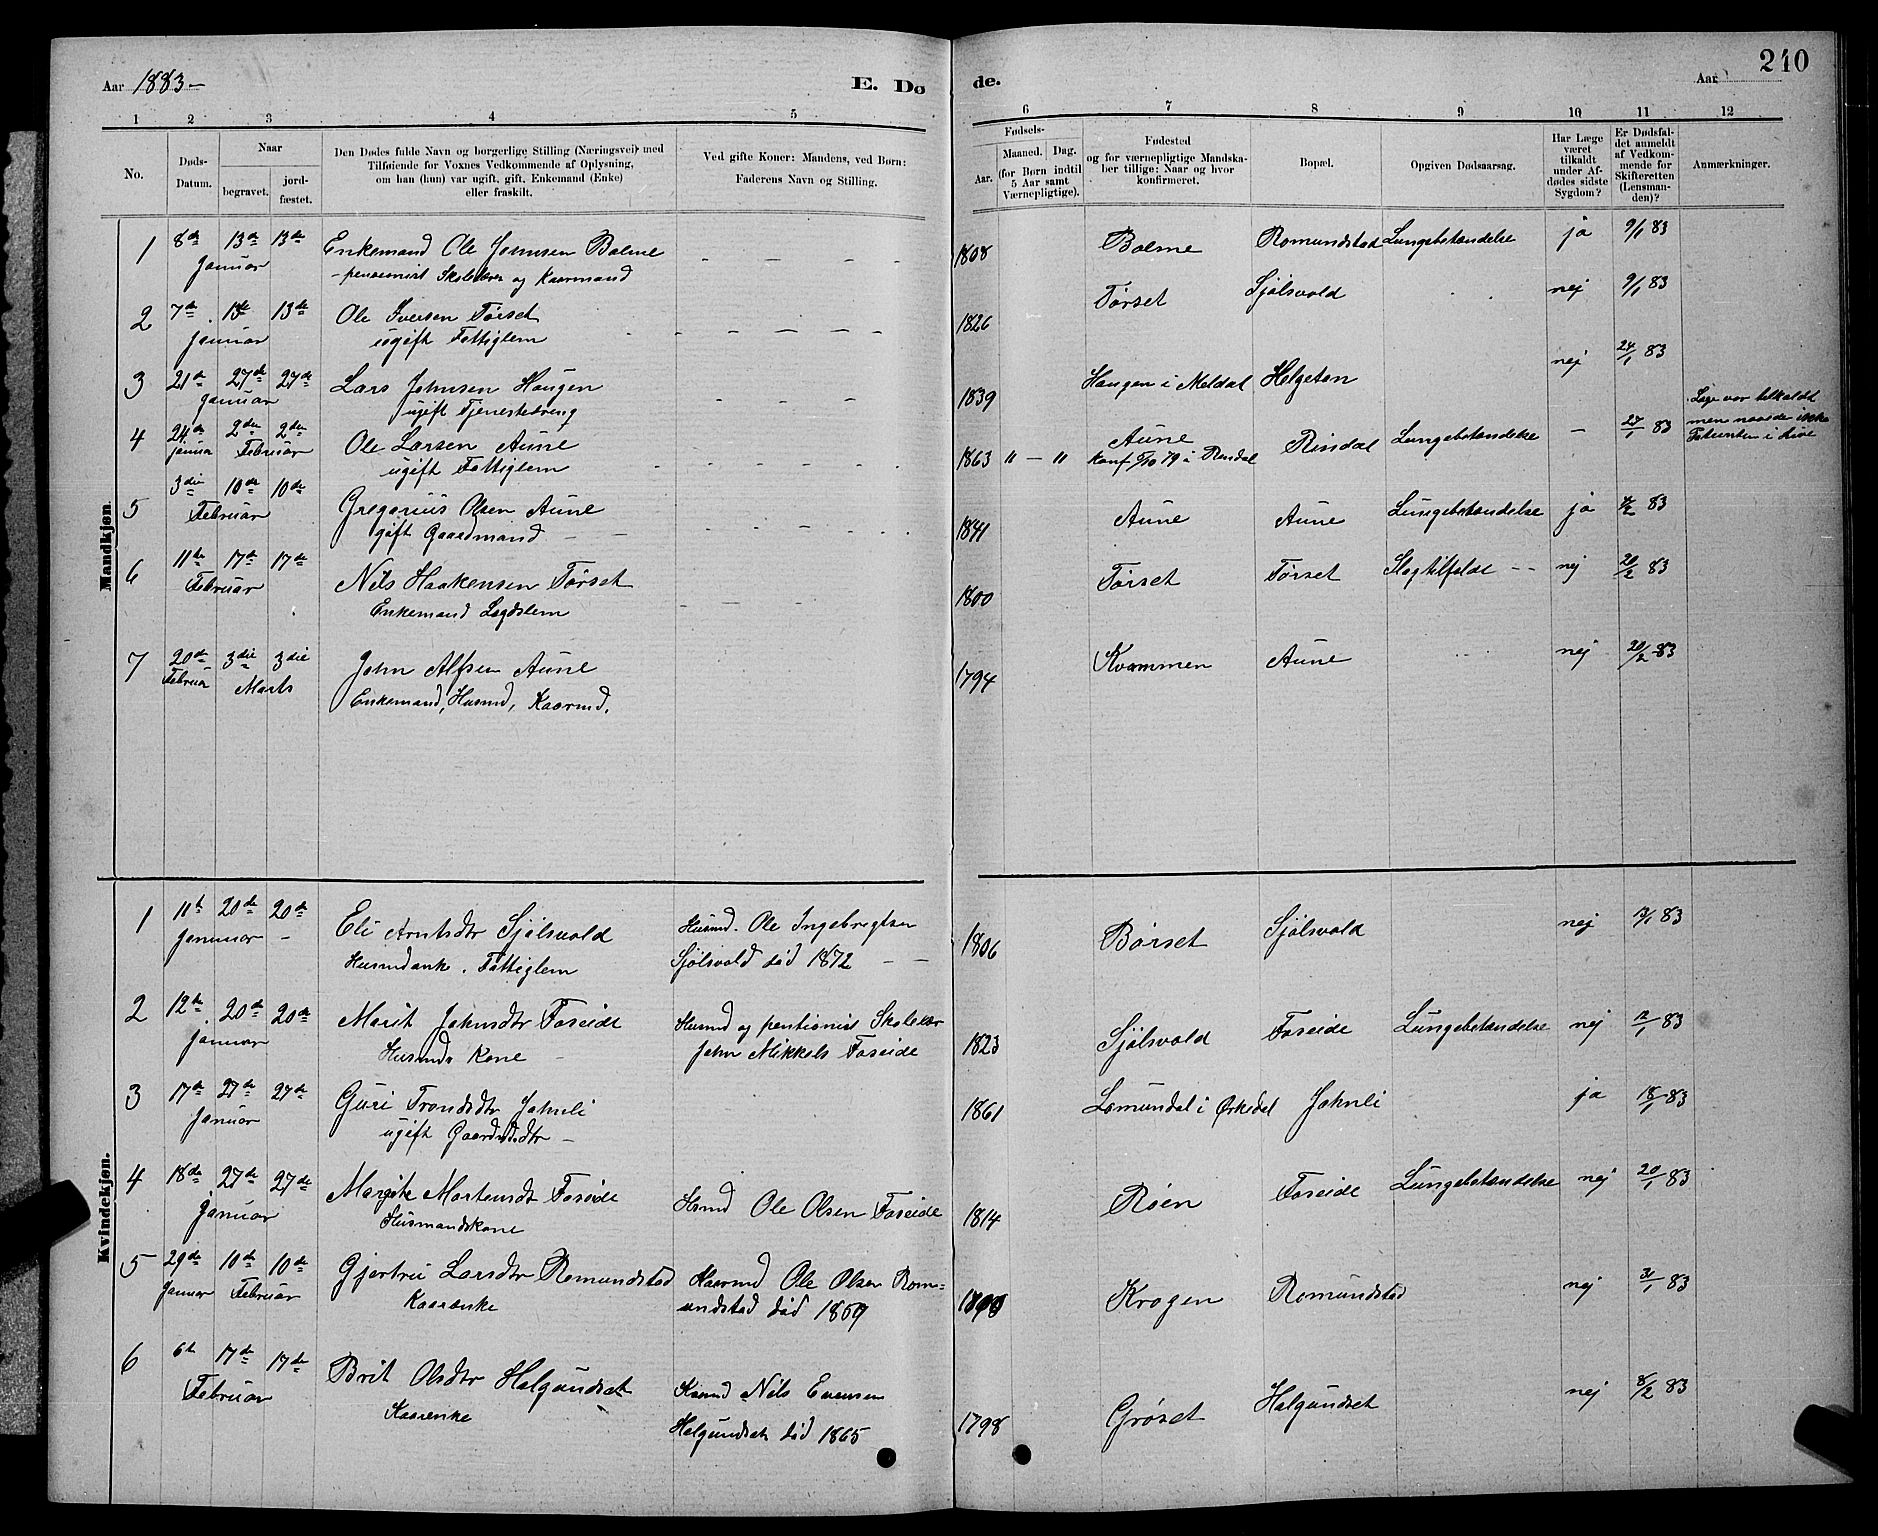 Aar 1883-
E. Dø
de.
Aar
210
1 2 3 4 5 6 7 8 9 10 11 12
No.
Døds-
Datum.
Naar
begravet.
jord-
fæstet.
Den Dødes fulde Navn og borgerlige Stilling (Næringsvei) med
Tilføiende for Voxnes Vedkommende af Oplysning,
om han (hun) var ugift, gift, Enkemand (Enke)
eller fraskilt.
Ved gifte Koner: Mandens, ved Børn:
Faderens Navn og Stilling.
Fødsels-
Aar.
Maaned. Dag.
(for Børn indtil
5 Aar samt
Værnepligtige).
Fødested
og for værnepligtige Mandska-
ber tillige: Naar og hvor
konfirmeret.
Bopæl.
Opgiven Dødsaarsag.
Har Læge
været
tilkaldt
under Af-
dødes sidste
Sygdom?
Er Dødsfal-
det anmeldt
af Vedkom-
mende for
Skifteretten
(Lensman-
den)?
Anmærkninger.
Mandkjøn.
1 8de 13de 13de Enkemand Ole Johnsen Bolme 1808 Bolme Romundstad Lungebetændelse ja 9/1 83
Januar -pensionist Skolelærer og Kaarmand
2 7de 13de 13de Ole Iversen Tørset 1826 Tørset Sjølsvold nej 9/1 83
Januar ugift Fattiglem
3 21de 27de 27de Lars Johnsen Haugen 1839 Haugen i Meldal Helgeton nej 24/1 83
Januar ugift Tjenestedreng
4 24de 2den 2den Ole Larsen Aune 1863 " - " Aune Rindal Lungebetændelse - 27/1 83 Læge var tilkaldt
januar Februar ugift Fattiglem konf 79 i Rindal men naaede ikke
Patienten i Live
5 3die 10de 10de Gregorius Olsen Aune 1841 Aune Aune Lungebetændelse ja 83
Februar gift Gaardmand
6 11te 17de 17de Nils Haakensen Tørset 1800 Tørset Tørset Slagtilfælde -- nej 20/2 83
Februar Enkemand Lægdslem
7 20de 3die 3die John Alfsen Aune 1794 Kvammen Aune nej 20/2 83
Februar Marts Enkemand, Husmd, Kaarmd.
Kvindekjøn.
1 11te 20de 20de Eli Arntsdtr Sjølsvold Husmd. Ole Ingebregtsen 1806 Børset Sjølsvold nej 83
Januar - Husmdsenke. Fattiglem Sjølsvold død 1872 - -
2 12te 20de 20de Marit Johnsdtr Foseide Husmd og pentionist Skolelær 1823 Sjølsvold Foseide Lungebetændelse nej 83
Januar Husmds Kone John Mikkels Foseide
3 17de 27de 27de Guri Trondsdtr Johnli 1861 Lomundal i Ørkedal Johnli ja 18/1 83
Januar ugift Gaardmdsdtr -
4 18de 27de 27de Margite Mortensdt Foseide Hsmd Ole Olsen Foseide 1814 Røen Foseide Lungebetændelse nej 20/1 83
Januar Husmandskone
5 29de 10de 10de Gjertru Larsdtr Romundstad Kaarmd Ole Olsen Rom= Krogen Romundstad nej 31/1 83
Januar Februar Kaarenke undstad død 1859
6 6te 17de 17de Brit Olsdtr Halgundset Kaarmd Nils Evensen 1798 Grøset Halgundset nej 8/2 83
Februar Kaarenke Halgundset død 1865